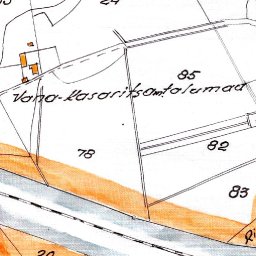 24
85
Vana-Kasaritsa
talumaa
78
82
83